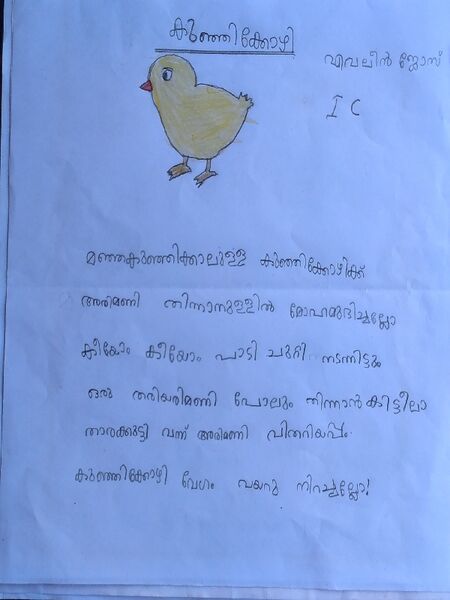 കുഞ്ഞിക്കോഴി
എവലീൻ ജോസ്
I C
മഞ്ഞകുഞ്ഞിക്കാലുള്ള കുഞ്ഞിക്കോഴിക്ക്
അരിമണി തിന്നാനുള്ളിൽ മോഹമുദിച്ചല്ലോ
കീയോം കീയോം പാടി ചുറ്റി നടന്നിട്ടും
ഒരു തരിയരിമണി പോലും തിന്നാൻ കിട്ടീലാ
താരക്കുട്ടി വന്ന് അരിമണി വിതറിയപ്പം
കുഞ്ഞിക്കോഴി വേഗം വയറു നിറച്ചല്ലോ!